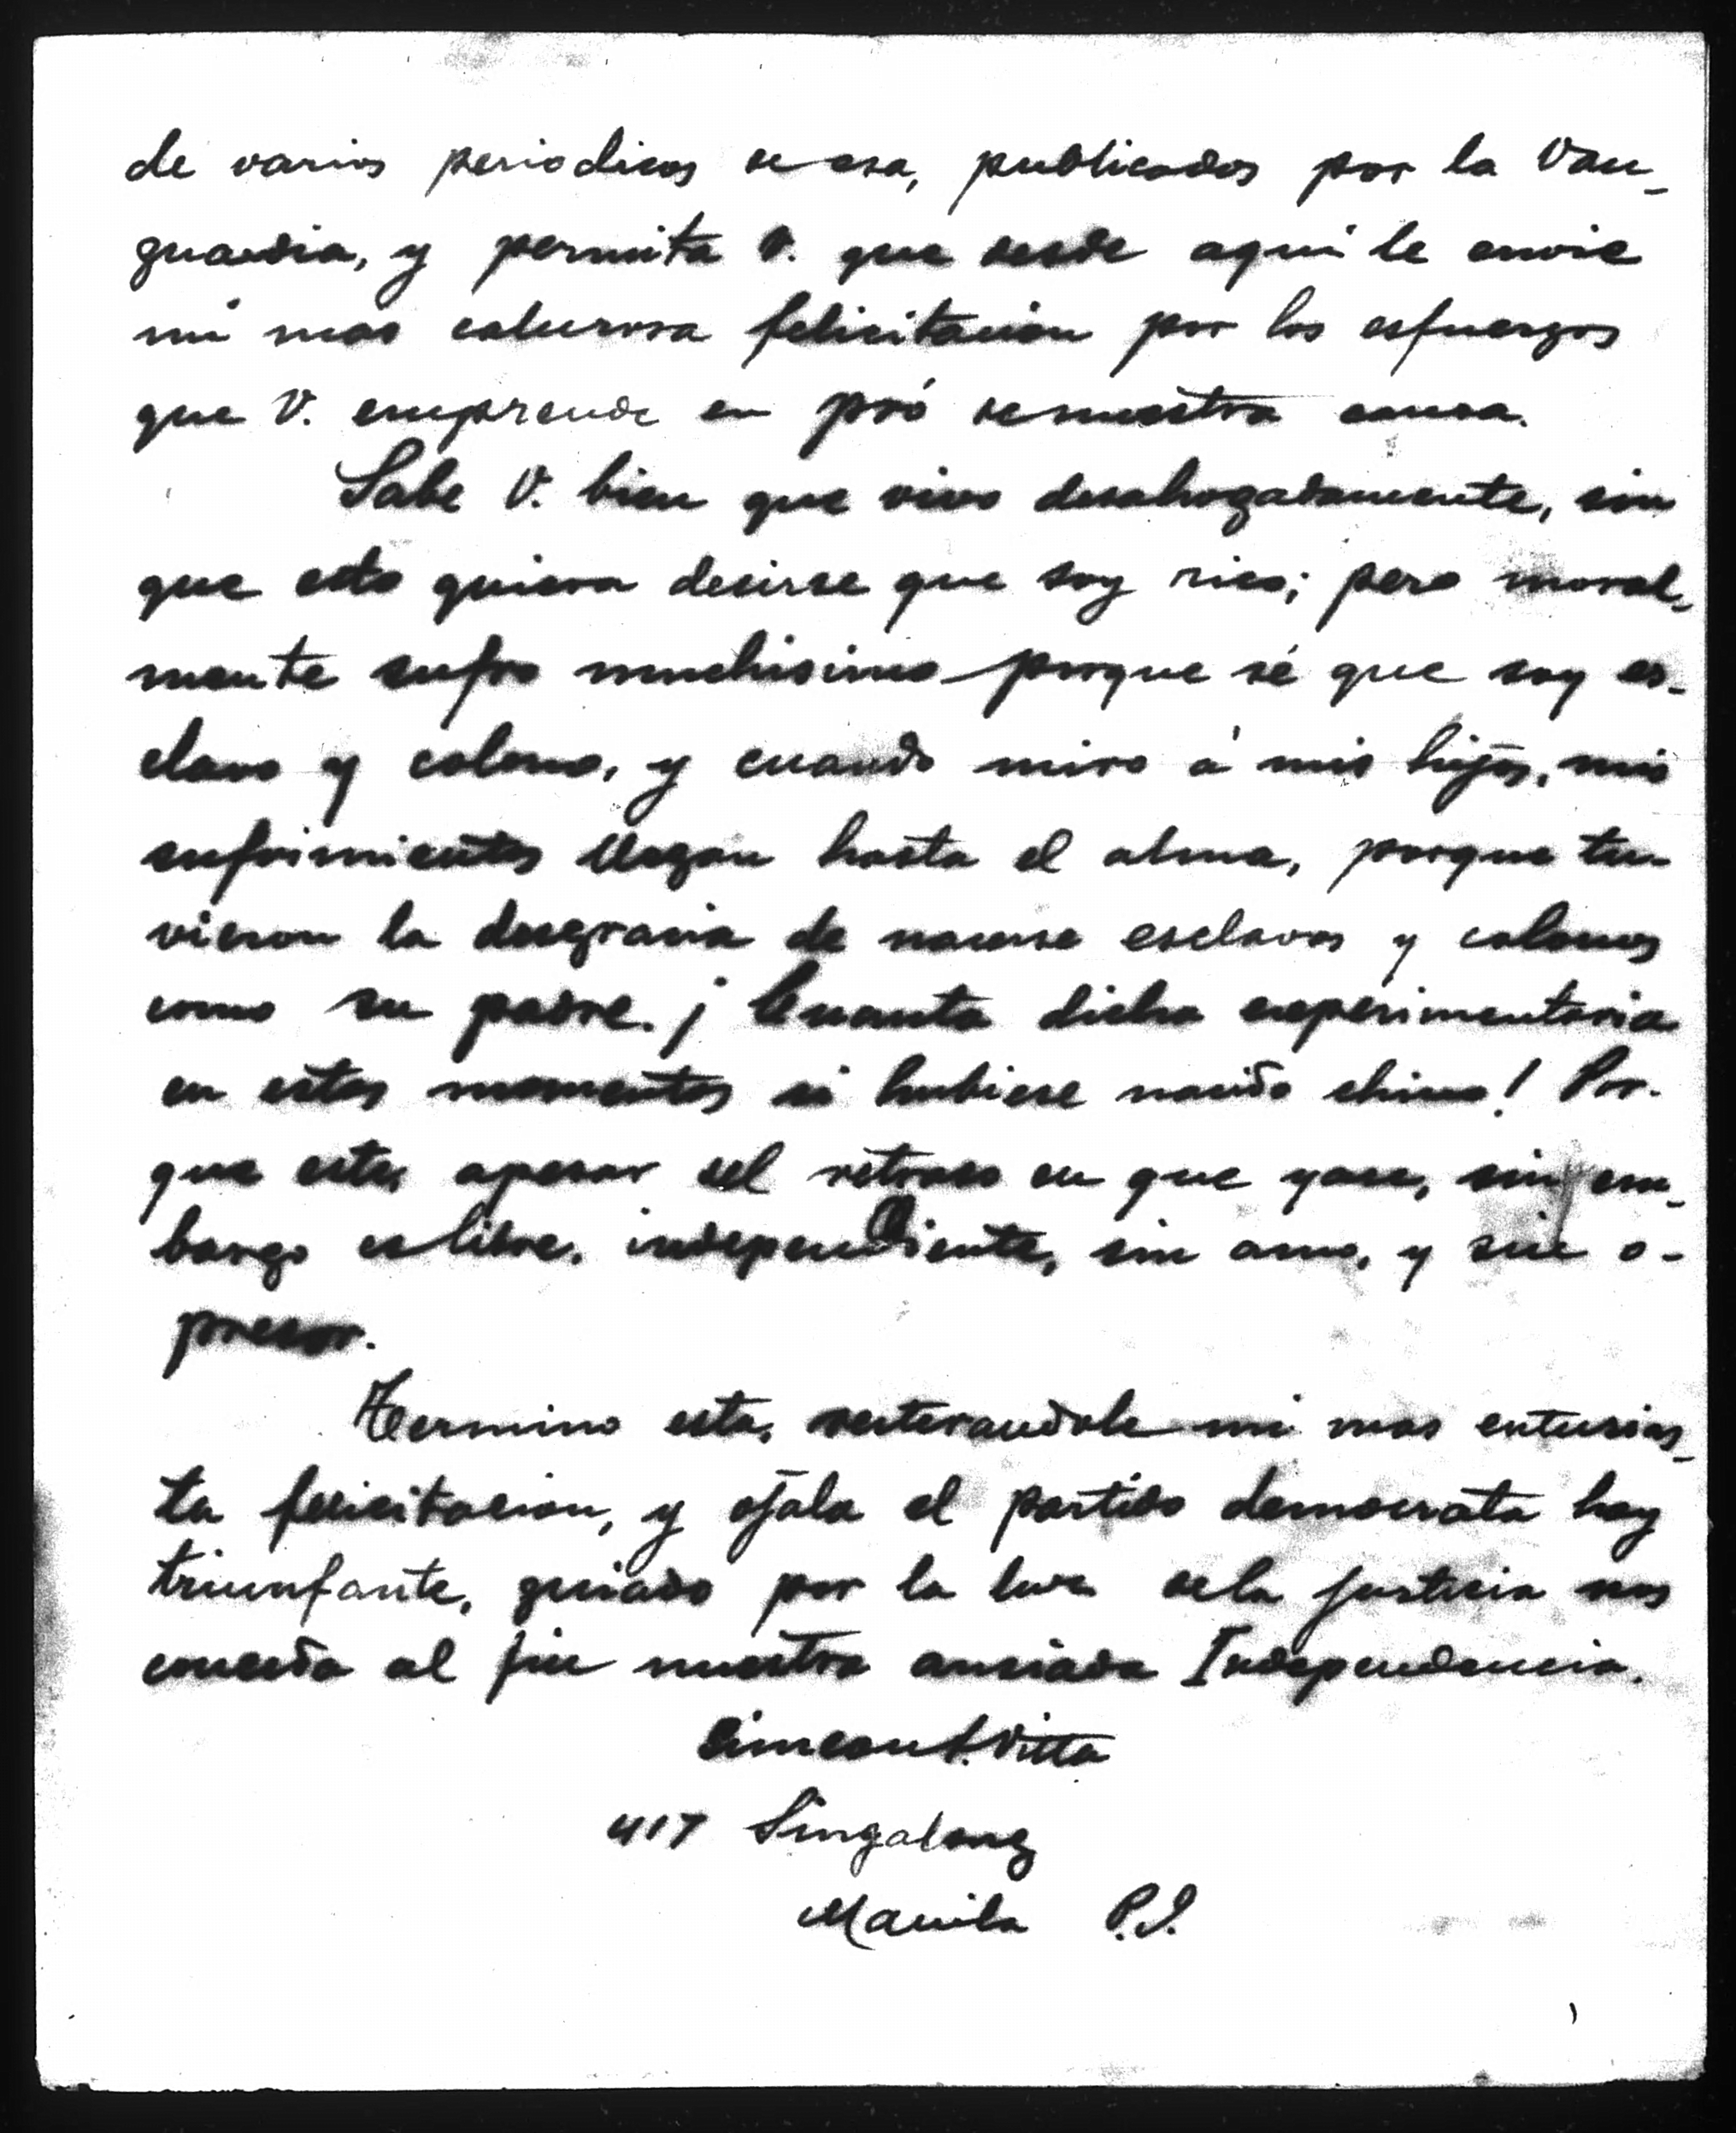 de varios periodicos de esa, publicados por la Van-
guardia, y permita V. que desde aqui le envie
mi mas calurosa felicitacion por los esfuerzos
que V. emprende en pró de nuestra causa.
Sabe V. bien que vivo desahogadamente, sin
que esto quiera decirse que soy rico; pero moral-
mente sufro muchisimo porque sé que soy es-
clavo y colono, y cuando miro á mis hijos, mis
sufrimientos llegan hasta el alma, porque tu-
vieron la desgracia de nacerse esclavos y colonos
como su padre. ¡Cuanta dicha experimentaria
en estos momentos si hubiese nacido chino! Por-
que este, apesar del retraso en que yace, sin em-
bargo es libre, independiente, sin amo, y sin o-
presor.
Termino esta, reiterandole mi mas entusias-
ta felicitacion, y ojala el partido democrata hoy
triunfante, guiado por la luz de la justicia nos
conceda al fin nuestra ansiada Independencia.
Simeon Villa
417 Singalong
Manila P.I.